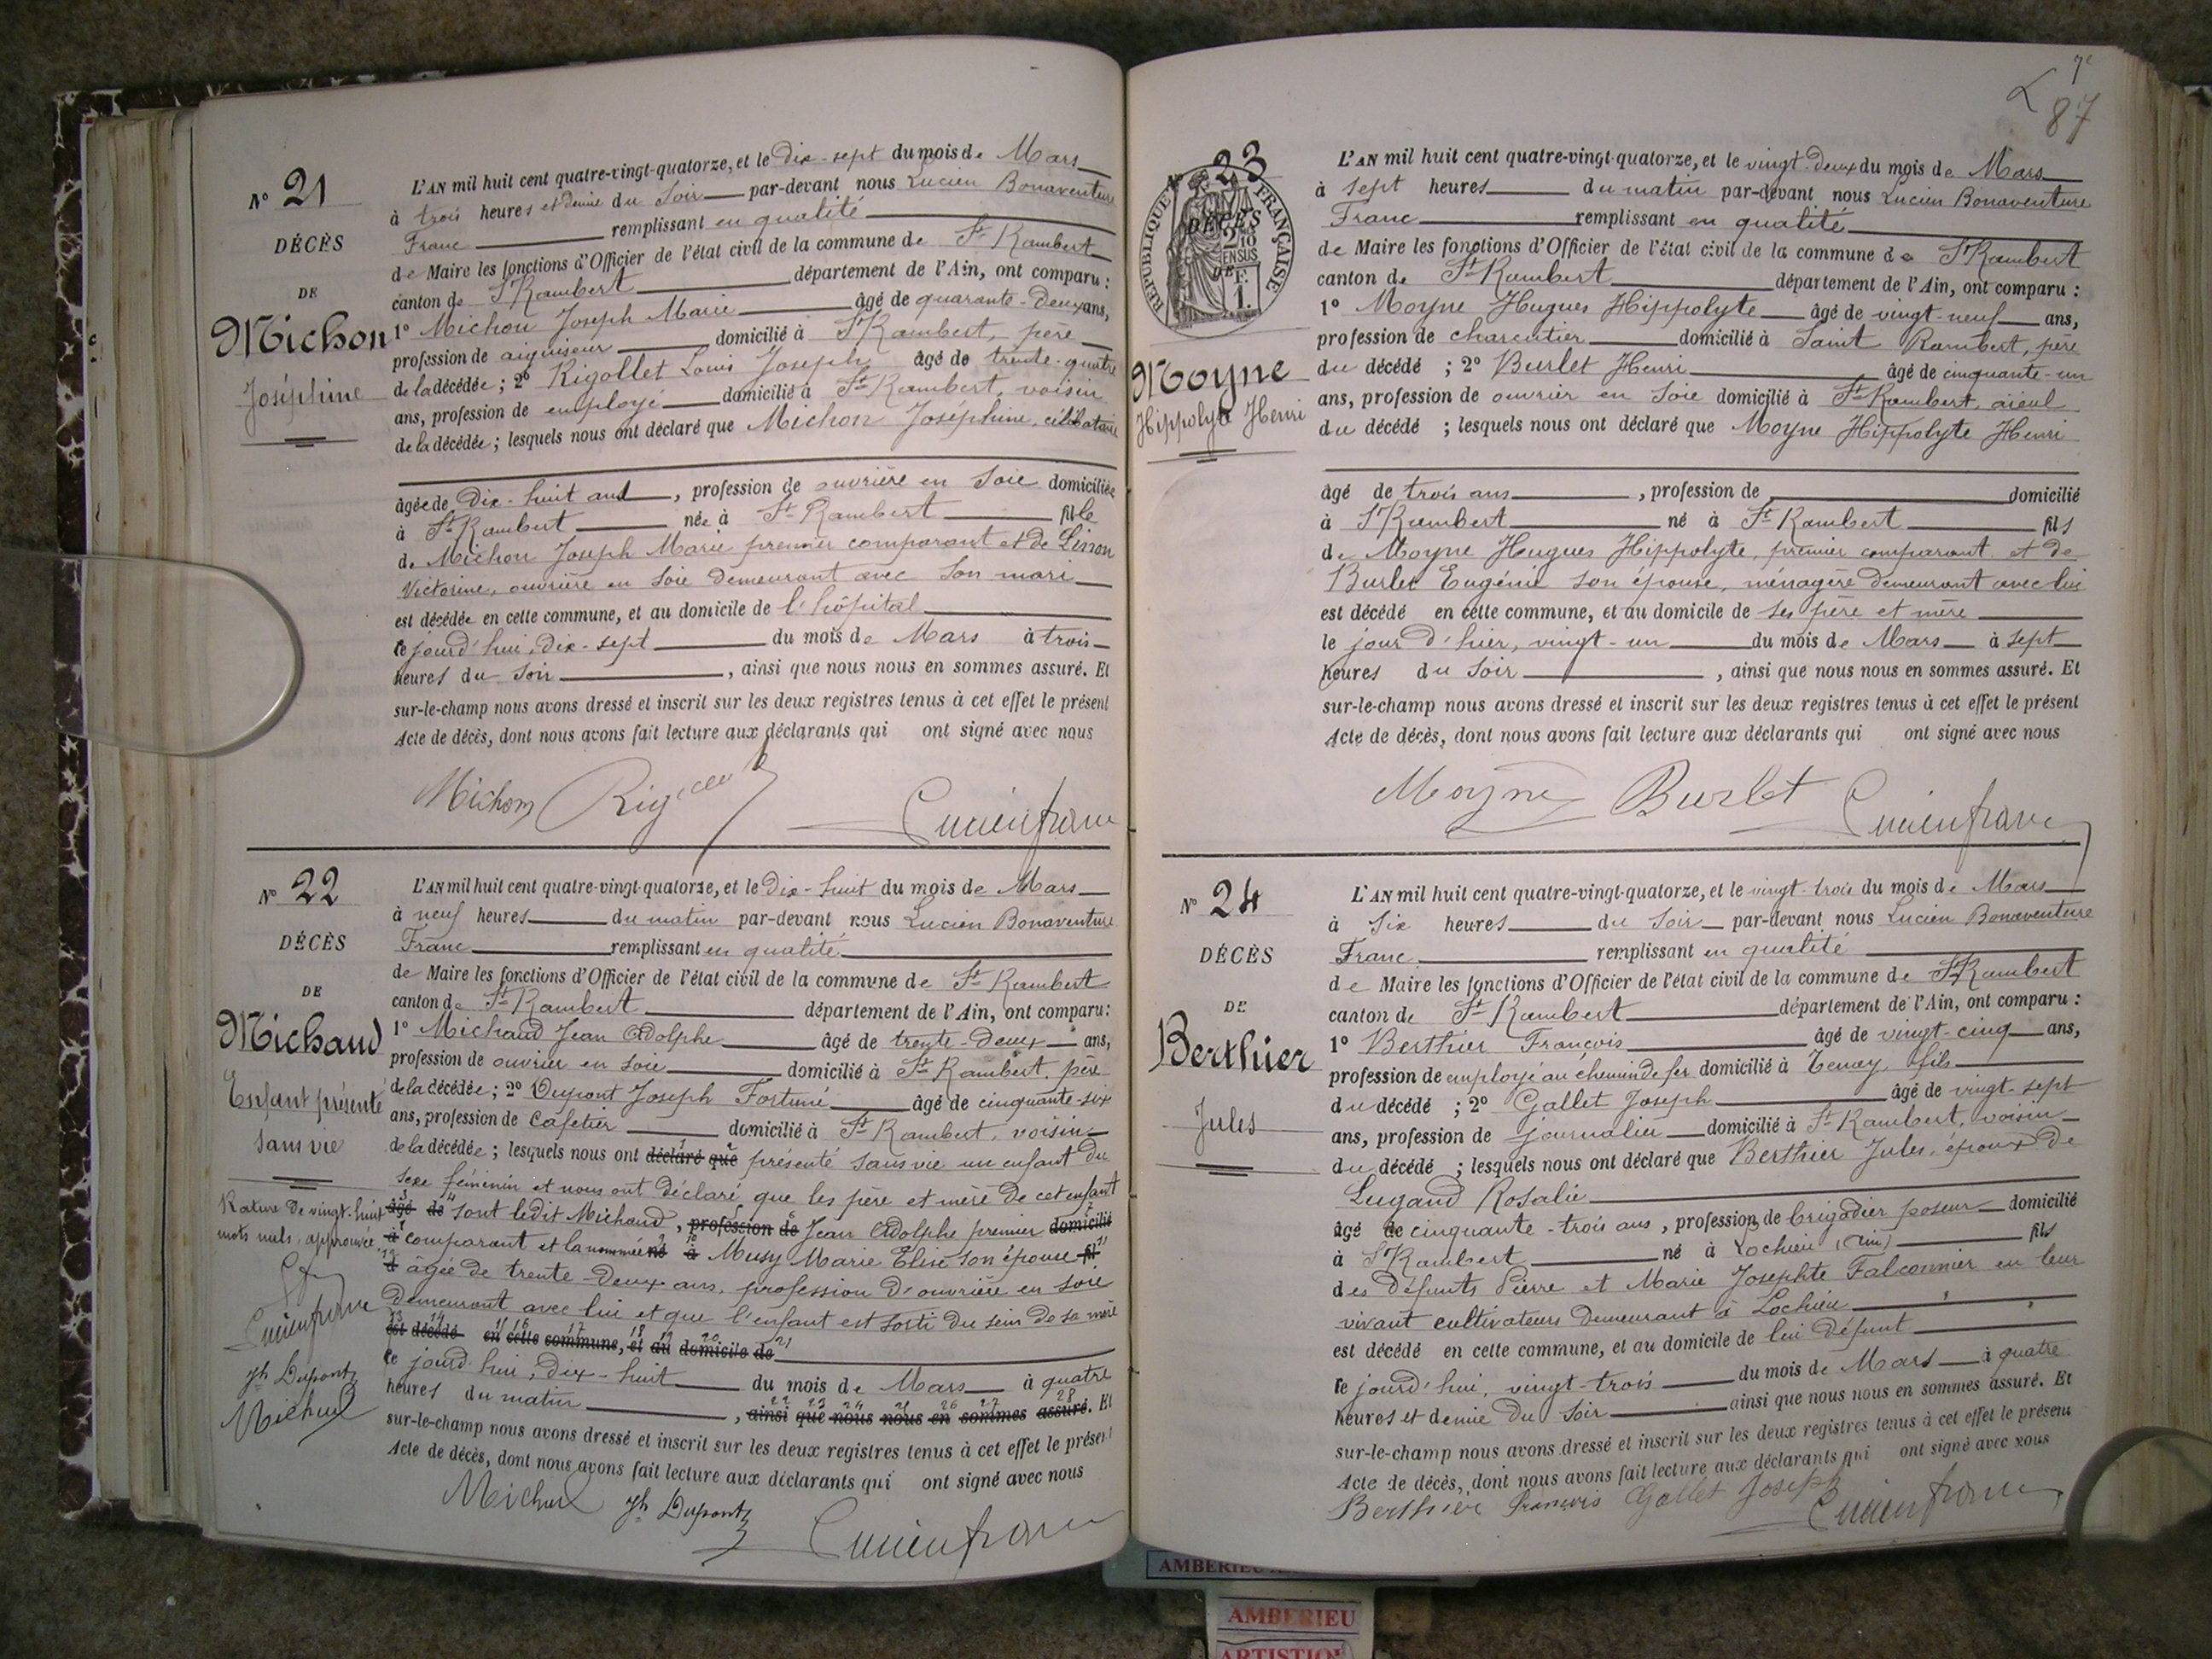 N° 21
DÉCÈS
DE
Michon
Joséphine
L'AN mil huit cent quatre-vingt-quatorze, et le dix-sept du mois de Mars
à trois heures et demie du soir par-devant nous Lucien Bonaventure
Franc remplissant en qualité
de Maire les fonctions d'Officier de l'état civil de la commune de St Rambert
canton de St Rambert département de l'Ain, ont comparu :
1° Michon Joseph Marie âgé de quarante-deux ans,
profession de aiguiseur domicilié à St Rambert, père
de la décédée ; 2° Rigollet Louis Joseph âgé de trente-quatre
ans, profession de employé domicilié à St Rambert, voisin
de la décédée ; lesquels nous ont déclaré que Michon Joséphine, célibataire
âgée de dix-huit ans, profession de ouvrière en soie domiciliée
à St Rambert née à St Rambert fille
de Michon Joseph Marie premier comparant et de
Victorine, ouvrière en soie demeurant avec son mari
est décédée en cette commune, et au domicile de l'hôpital
le jourd'hui, dix-sept du mois de Mars à trois
heures du soir, ainsi que nous nous en sommes assuré. Et
sur-le-champ nous avons dressé et inscrit sur les deux registres tenus à cet effet le présent
Acte de décès, dont nous avons fait lecture aux déclarants qui ont signé avec nous
Michon Lucien franc
N° 22
DÉCÈS
DE
Michaud
Enfant présenté
sans vie
Rature de vingt-huit
mots nuls, approuvée
Lucien franc
Jh Dupont
Michaud
L'AN mil huit cent quatre-vingt-quatorze, et le dix-huit du mois de Mars
à neuf heures du matin par-devant nous Lucien Bonaventure
Franc remplissant en qualité
de Maire les fonctions d'Officier de l'état civil de la commune de St Rambert
canton de St Rambert département de l'Ain, ont comparu :
1° Michaud Jean Adolphe âgé de trente-deux ans,
profession de ouvrier en soie domicilié à St Rambert, père
de la décédée ; 2° Dupont Joseph Fortuné âgé de cinquante-six
ans, profession de cafetier domicilié à St Rambert, voisin
de la décédée ; lesquels nous ont déclaré que présenté sans vie un enfant du
sexe féminin et nous ont déclaré que les père et mère de cet enfant
âgé de sont ledit Michaud, profession de Jean Adolphe premier domicilié
à comparant et la nommée né à Musy Marie Elise son épouse fil
d âgée de trente-deux ans, profession d'ouvrière en soie
demeurant avec lui et que l'enfant est sorti du sein de sa mère
est décédé en cette commune, et au domicile de
le jourd'hui, dix-huit du mois de Mars à quatre
heures du matin, ainsi que nous nous en sommes assuré. Et
sur-le-champ nous avons dressé et inscrit sur les deux registres tenus à cet effet le présent
Acte de décès, dont nous avons fait lecture aux déclarants qui ont signé avec nous
Michaud Jh Dupont Lucien franc
7e
87
N° 23
RÉPUBLIQUE FRANÇAISE
DÉCÈS
2/10
EN SUS
DE
1 F.
Moyne
Hippolyte Henri
L'AN mil huit cent quatre-vingt-quatorze, et le vingt-deux du mois de Mars
à sept heures du matin par-devant nous Lucien Bonaventure
Franc remplissant en qualité
de Maire les fonctions d'Officier de l'état civil de la commune de St Rambert
canton de St Rambert département de l'Ain, ont comparu :
1° Moyne Hugues Hippolyte âgé de vingt-neuf ans,
profession de charcutier domicilié à Saint Rambert, père
du décédé ; 2° Burlet Henri âgé de cinquante-un
ans, profession de ouvrier en soie domicilié à St Rambert, aïeul
du décédé ; lesquels nous ont déclaré que Moyne Hippolyte Henri
âgé de trois ans, profession de domicilié
à St Rambert né à St Rambert fils
de Moyne Hugues Hippolyte, premier comparant et de
Burlet Eugénie son épouse, ménagère demeurant avec lui
est décédé en cette commune, et au domicile de ses père et mère
le jour d'hier, vingt-un du mois de Mars à sept
heures du soir, ainsi que nous nous en sommes assuré. Et
sur-le-champ nous avons dressé et inscrit sur les deux registres tenus à cet effet le présent
Acte de décès, dont nous avons fait lecture aux déclarants qui ont signé avec nous
Moyne Burlet Lucien franc
N° 24
DÉCÈS
DE
Berthier
Jules
L'AN mil huit cent quatre-vingt-quatorze, et le vingt-trois du mois de Mars
à six heures du soir par-devant nous Lucien Bonaventure
Franc remplissant en qualité
de Maire les fonctions d'Officier de l'état civil de la commune de St Rambert
canton de St Rambert département de l'Ain, ont comparu :
1° Berthier François âgé de vingt-cinq ans,
profession de employé au chemin de fer domicilié à Tenay, fils
du décédé ; 2° Gallet Joseph âgé de vingt-sept
ans, profession de journalier domicilié à St Rambert, voisin
du décédé ; lesquels nous ont déclaré que Berthier Jules, époux de
Lugand Rosalie
âgé de cinquante-trois ans, profession de brigadier poseur domicilié
à St Rambert né à Lochieu (Ain) fils
des défunts Pierre et Marie Josephte Falconnier en leur
vivant cultivateurs demeurant à Lochieu
est décédé en cette commune, et au domicile de lui défunt
le jourd'hui, vingt-trois du mois de Mars à quatre
heures et demie du soir ainsi que nous nous en sommes assuré. Et
sur-le-champ nous avons dressé et inscrit sur les deux registres tenus à cet effet le présent
Acte de décès, dont nous avons fait lecture aux déclarants qui ont signé avec nous
Berthier françois Gallet Joseph Lucien franc
AMBERIEU
AMBERIEU
ARTISTION